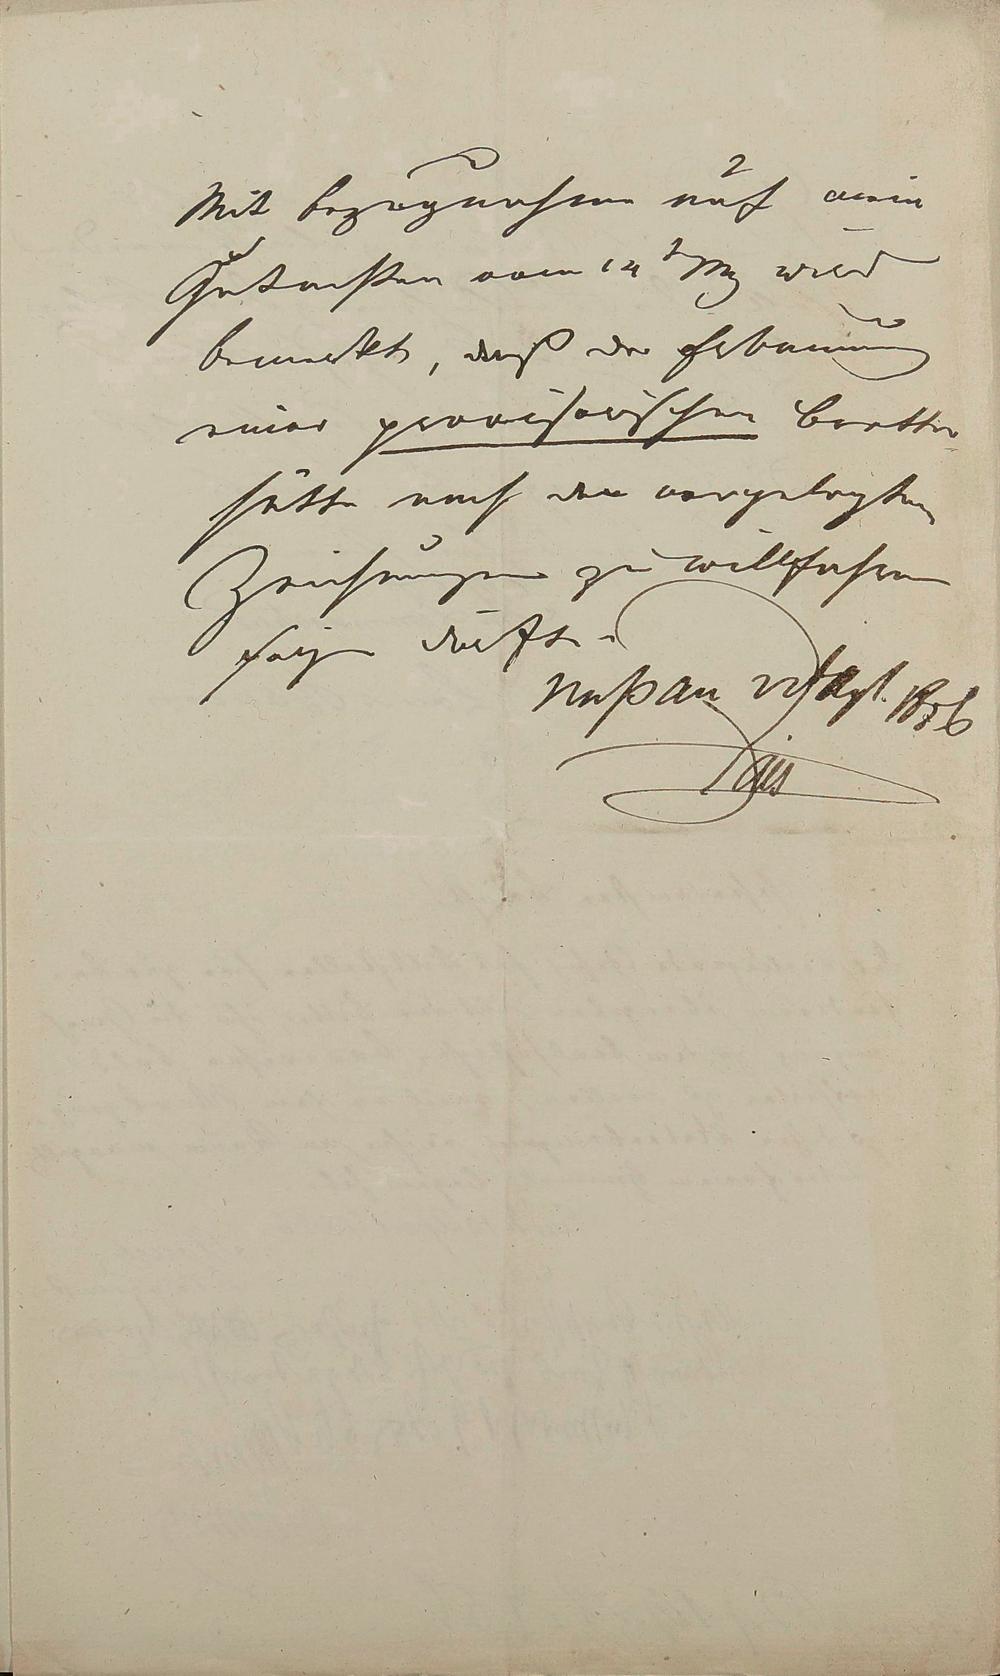 Mit bezugnahme auf mein
Gutachten vom 14 wird
bemerkt, daß der Erbauung
einer provisorischen Bretter-
hütte nach den vorgelegten
Zeichnungen zu willfahren
sein dürfte.
Naßau 1856